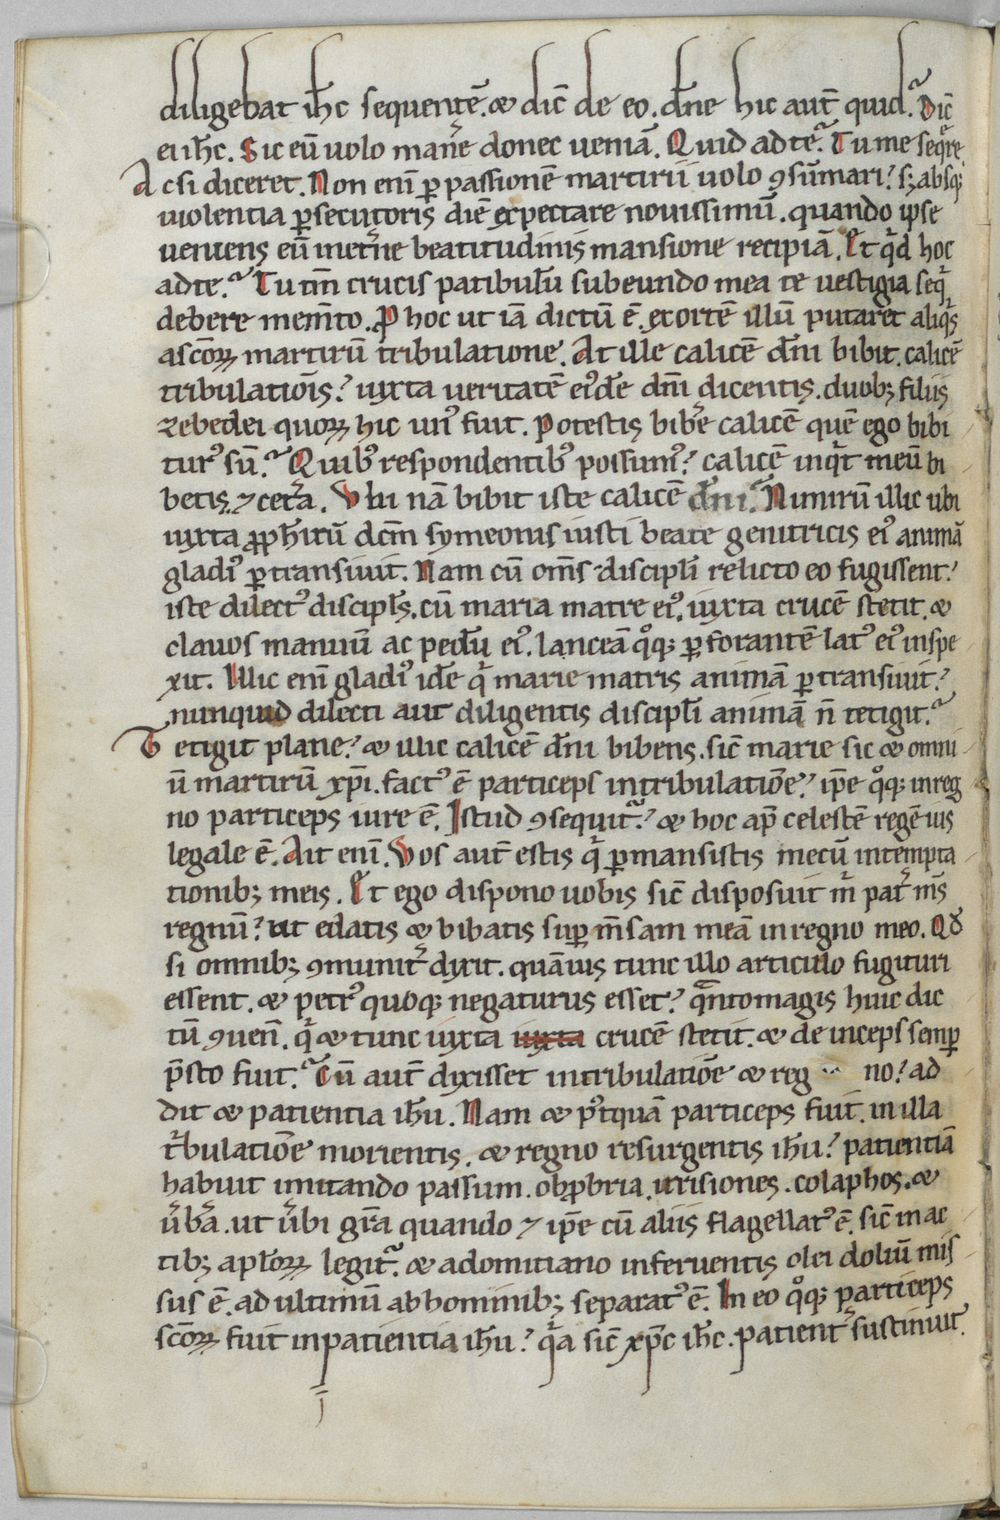 diligebat ih̅c sequentē. & dic̅ de eo. dn̅e hic aut̅ quid? Dic̅
ei ih̅c. Sic eū uolo man̅e donec ueniā. Quid ad te? Tu me seq̅re
Ac si diceret. Non eni̅ ꝑ passionē martirii uolo ꝯsūmari? sꝫ absqꝫ
uiolentia ꝑsecutoris diē expectare nouissimū. quando ipse
ueniens eū inet̅ne beatitudinis mansione recipiā. Et qͥd hoc
ad te? Tu tm̅ crucis patibulū subeundo mea te uestigia seq̅
debere mem̅to. P̱ hoc ut iā dictū ē. exortē illū putaret aliqͥs
a sc̅oꝝ martirū tribulatione. At ille calicē dn̅i bibit. calicē
tribulatiōis? iuxta ueritatē eiꝰdē dn̅i dicentis. duobꝫ filiis
zebedei quoꝝ hic unꝰ fuit. Potestis bib̅e calicē quē ego bibi
turꝰ sū? Quibꝰ respondentibꝰ possumꝰ? calicē inqͥt meū bi
betis. ⁊ cet̅a. Vbi nā bibit iste calicē dn̅i? Nimirū illic ubi
iuxta ꝓph̅itiū dc̅m symeonis iusti beate genitricis eiꝰ animā
gladiꝰ ꝑtransiuit. Nam cū om̅s discipl̅i relicto eo fugissent?
iste dilectꝰ discipl̅s. cū maria matre eiꝰ. iuxta crucē stetit. &
clauos manuū ac pedū eiꝰ. lanceā qͦqꝫ ꝑforantē latꝰ eiꝰ inspe
xit. Illic eni̅ gladiꝰ idē qͥ marie matris animā ꝑtransiuit?
nunquid dilecti aut diligentis discipl̅i animā n̅ tetigit?
Tetigit plane? & illic calicē dn̅i bibens. sic̅ marie sic & omni
ū martirū xp̅i. factꝰ ē particeps in tribulatiōe? ip̅e qͦqꝫ in reg
no particeps iure ē. Istud ꝯsequit̅? & hoc ap̅ celestē regē ius
legale ē. Ait eni̅. Vos aut̅ estis qͥ ꝑmansistis mecū in tempta
tionibꝫ meis. Et ego dispono uobis sic̅ disposuit m̅ pat̅ m̅s
regnū? ut edatis & bibatis sup̅ m̅sam meā in regno meo. Qd̅
si omnibꝫ ꝯmunit̅ dixit. quāuis tunc illo articulo fugituri
essent. & petrꝰ quoqꝫ negaturus esset? qͣntomagis huic dic
tū ꝯuen̅. qͥ & tunc iuxta iuxta crucē stetit. & deinceps semꝑ
p̅sto fuit? Cū aut̅ dixisset in tribulatiōe & reg ·· no? ad
dit & patientia ih̅u. Nam & pꝰtquā particeps fuit. in illa
tͥbulatiōe morientis. & regno resurgentis ih̅u? patientiā
habuit imitando passum. obꝓbria. irrisiones. colaphos. &
u̅b̅a. ut u̅bi gr̅a quando ⁊ ip̅e cū aliis flagellatꝰ ē. sic̅ in ac
tibꝫ apl̅oꝝ legit̅? & a domitiano in feruentis olei doliū mis
sus ē. ad ultimū ab hominibꝫ separatꝰ ē. In eo qͦqꝫ particeps
sc̅oꝝ fuit in patientia ih̅u? qͥa sic̅ xp̅c ih̅c. patient̅ sustinuit.